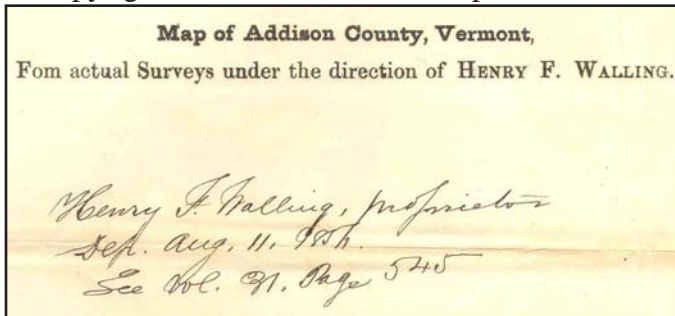 Map of Addison County, Vermont,
Fom actual Surveys under the direction of HENRY F. WALLING.
Henry F. Walling, proprietor
Dep. Aug. 11,
See Vol. Page 545